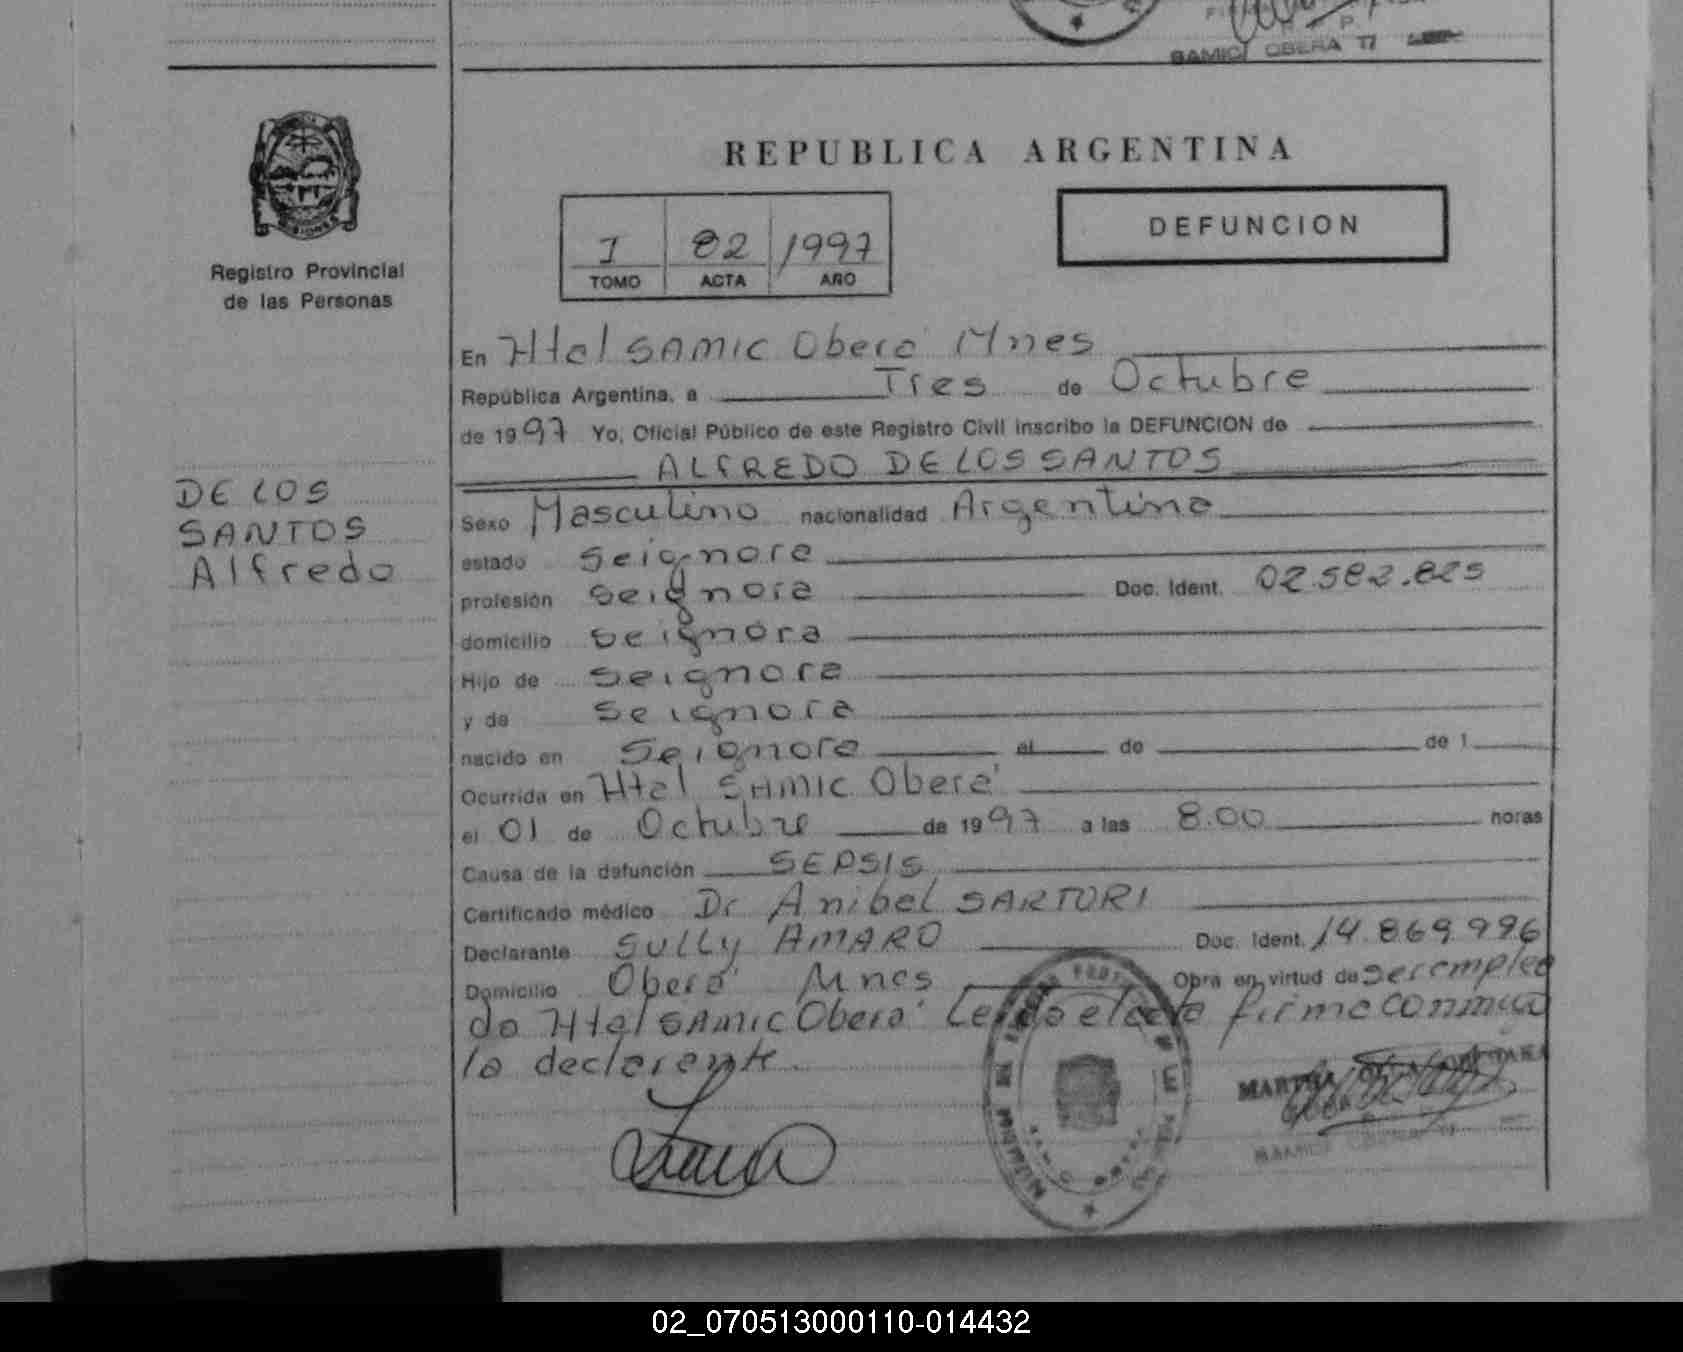 SAMIC OBERA
REPUBLICA ARGENTINA
DEFUNCION
I 82 1997
TOMO ACTA AÑO
Registro Provincial
de las Personas
En Htal SAMIC Oberá Mnes
República Argentina, a Tres de Octubre
de 1997 Yo, Oficial Público de este Registro Civil inscribo la DEFUNCION de
ALFREDO DE LOS SANTOS
DE LOS
SANTOS
Alfredo
Sexo Masculino nacionalidad Argentina
estado Seignora
profesión Seignora Doc. Ident. 02.582.825
domicilio Seignora
Hijo de Seignora
y de Seignora
nacido en Seignora el de de 1
Ocurrida en Htal SAMIC Oberá
el 01 de Octubre de 1997 a las 8.00 horas
Causa de la defunción SEPSIS
Certificado médico Dr Anibal SARTORI
Declarante SULLY AMARO Doc. Ident. 14.869.996
Domicilio Oberá Mnes Obra en virtud de ser emplea
do Htal SAMIC Oberá Leída el acta firma conmigo
la declarante.
MARTHA
SAMIC OBERA
02_070513000110-014432